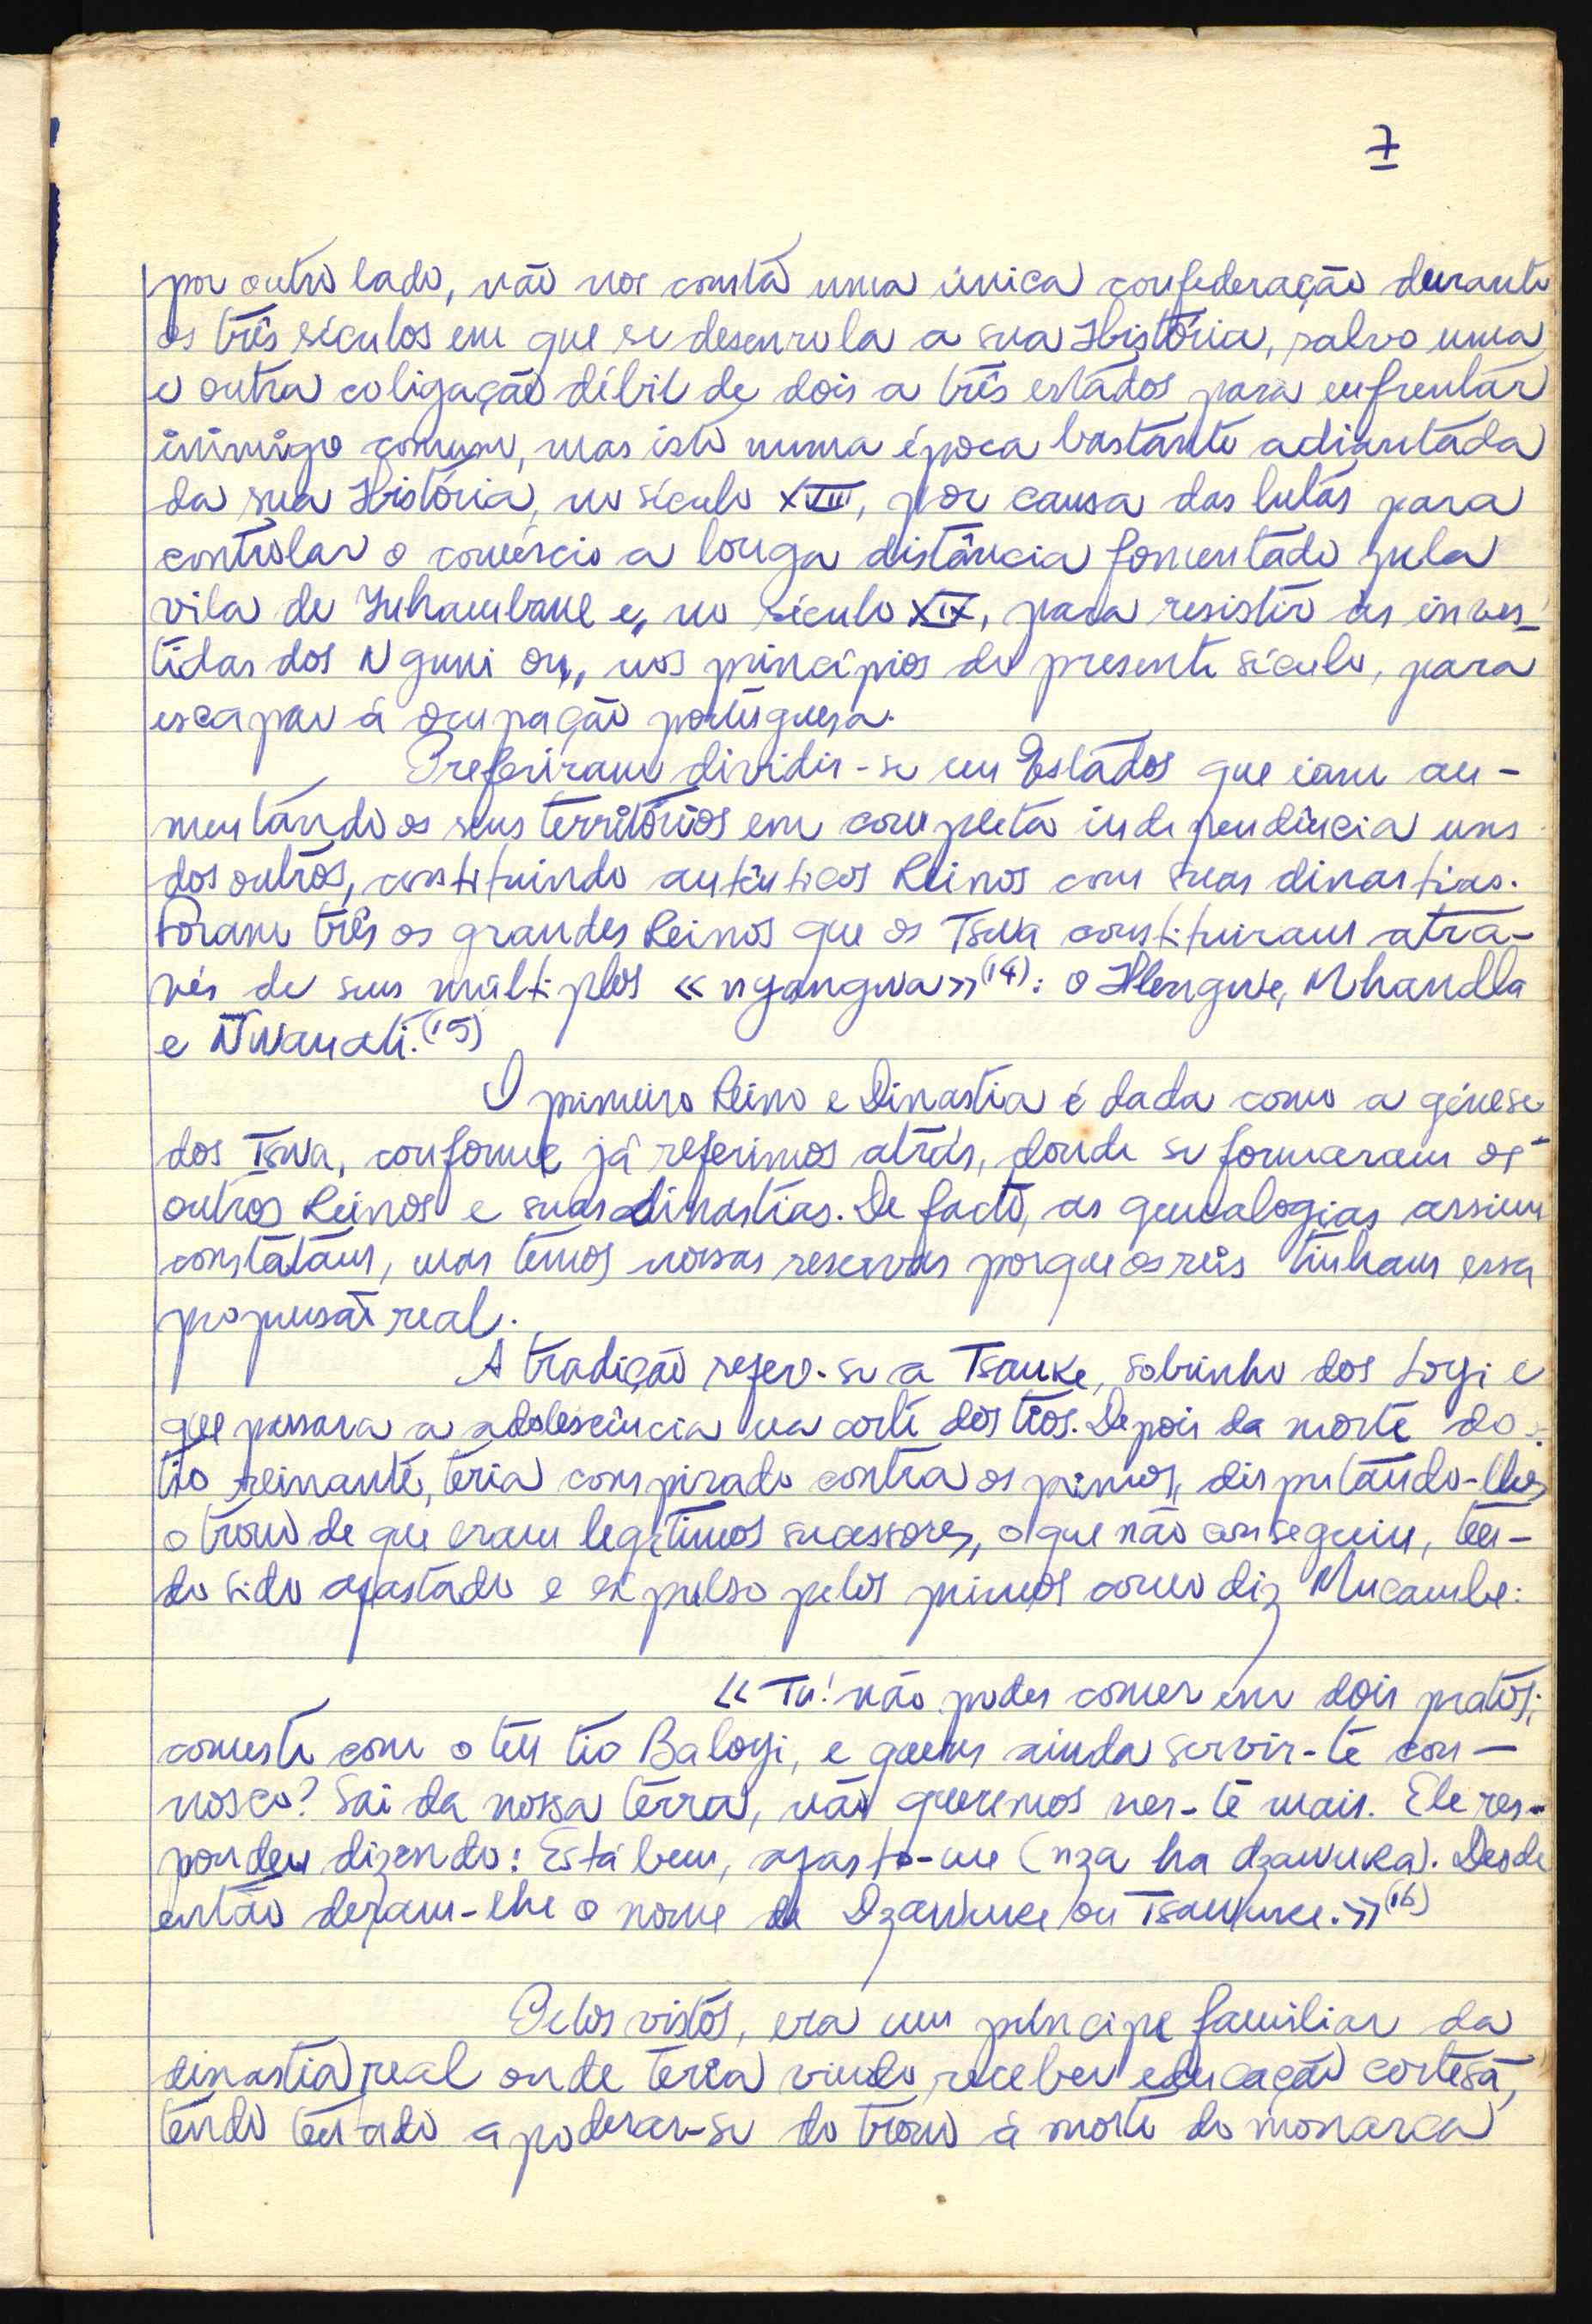 7
por outro lado, não nos consta uma única confederação durante
os três séculos em que se desenrola a sua História, salvo uma
e outra coligação débil de dois a três estados para enfrentar
inimigo comum, mas isto numa época bastante adiantada
da sua História, no século XVIII, por causa das lutas para
controlar o comércio a longa distância fomentado pela
vila de Inhambane e, no século XIX, para resistir às inves-
tidas dos Nguni ou, nos princípios do presente século, para
escapar à ocupação portuguesa.
Preferiram dividir-se em Estados que iam au-
mentando os seus territórios em completa independência uns
dos outros, constituindo autênticos Reinos com suas dinastias.
Foram três os grandes Reinos que os Tswa constituiram atra-
vés de seus múltiplos «nyangwa»(14): o Hlengwe, Mhandla
e Nwanati.(15)
O primeiro Reino e Dinastia é dada como a génese
dos Tswa, conforme já referimos atrás, donde se formaram os
outros Reinos e suas dinastias. De facto, as genealogias assim
constatam, mas temos nossas reservas porque os reis tinham essa
real.
A tradição refere-se a Tsauke, sobrinho dos Loyi e
que passara a adolescência na corte dos tios. Depois da morte do
tio reinante, teria conspirado contra os primos, disputando-lhes
o trono de que eram legítimos sucessores, o que não conseguiu, ten-
do sido afastado e expulso pelos primos como diz Mucambe:
«Tu! não podes comer em dois pratos;
comeste com o teu tio Baloyi, e queres ainda servir-te con-
nosco? Sai da nossa terra, não queremos ver-te mais. Ele res-
pondeu dizendo: Está bem, afasto-me (nza ha dzawuka). Desde
então deram-lhe o nome de Dzawuke ou Tsawuke.»(16)
Pelos vistos, era um príncipe familiar da
dinastia real onde teria vindo receber educação cortesã,
tendo tentado apoderar-se do trono à morte do monarca